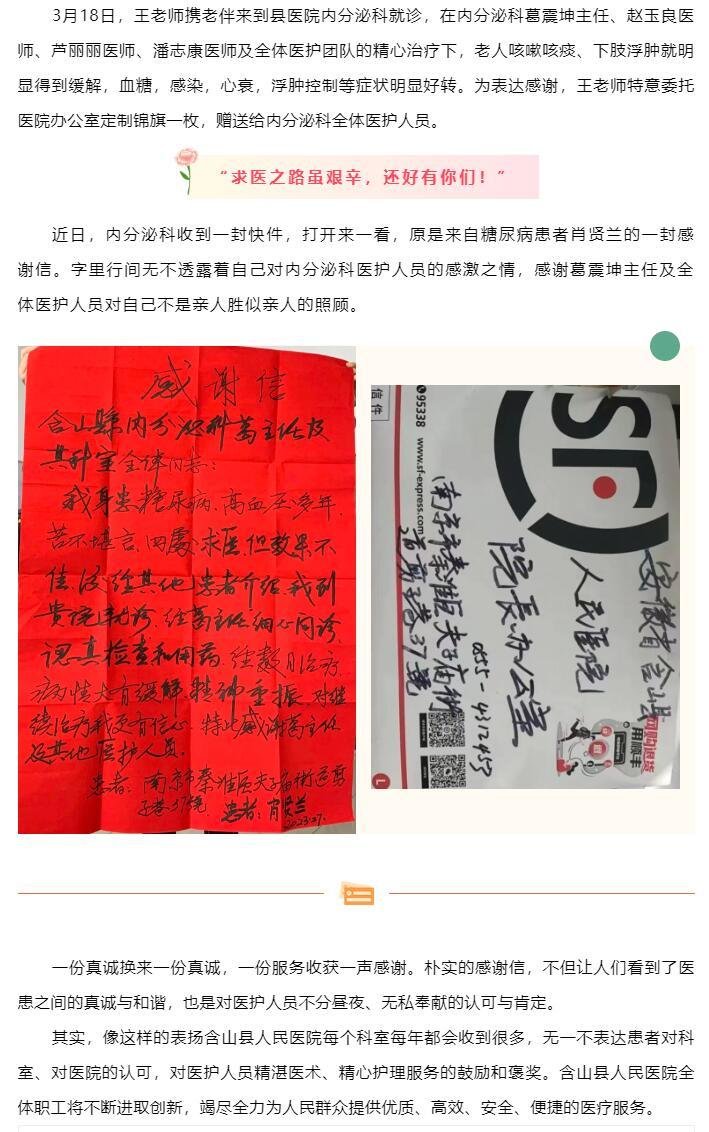 3月18日，王老师携老伴来到县医院内分泌科就诊，在内分泌科葛震坤主任、赵玉良医
师、芦丽丽医师、潘志康医师及全体医护团队的精心治疗下，老人咳嗽咳痰、下肢浮肿就明
显得到缓解，血糖，感染，心衰，浮肿控制等症状明显好转。为表达感谢，王老师特意委托
医院办公室定制锦旗一枚，赠送给内分泌科全体医护人员。
“求医之路虽艰辛，还好有你们！”
近日，内分泌科收到一封快件，打开来一看，原是来自糖尿病患者肖贤兰的一封感
谢信。字里行间无不透露着自己对内分泌科医护人员的感激之情，感谢葛震坤主任及全
体医护人员对自己不是亲人胜似亲人的照顾。
感谢信
含山縣内分泌科葛主任及
其科室全体同志：
我身患糖尿病、高血压多年，
苦不堪言，四處求医，但效果不
佳，后经其他患者介绍，我到
贵院就诊，经葛主任细心问诊，
认真检查和用药，经数月治疗，
病情大有缓解，精神重振，对继
续治疗我更有信心，特此感谢葛主任
及其他医护人员。
患者：南京市秦淮区夫子庙街道剪
子巷37号
患者：肖贤兰
信件
95338
www.sf-express.com
SF
安徽省含山县
人民医院
院長办公室
0555-4312453
南京市秦淮区夫子庙街
道剪子巷37号
网购退货
用顺丰
L
一份真诚换来一份真诚，一份服务收获一声感谢。朴实的感谢信，不但让人们看到了医
患之间的真诚与和谐，也是对医护人员不分昼夜、无私奉献的认可与肯定。
其实，像这样的表扬含山县人民医院每个科室每年都会收到很多，无一不表达患者对科
室、对医院的认可，对医护人员精湛医术、精心护理服务的鼓励和褒奖。含山县人民医院全
体职工将不断进取创新，竭尽全力为人民群众提供优质、高效、安全、便捷的医疗服务。